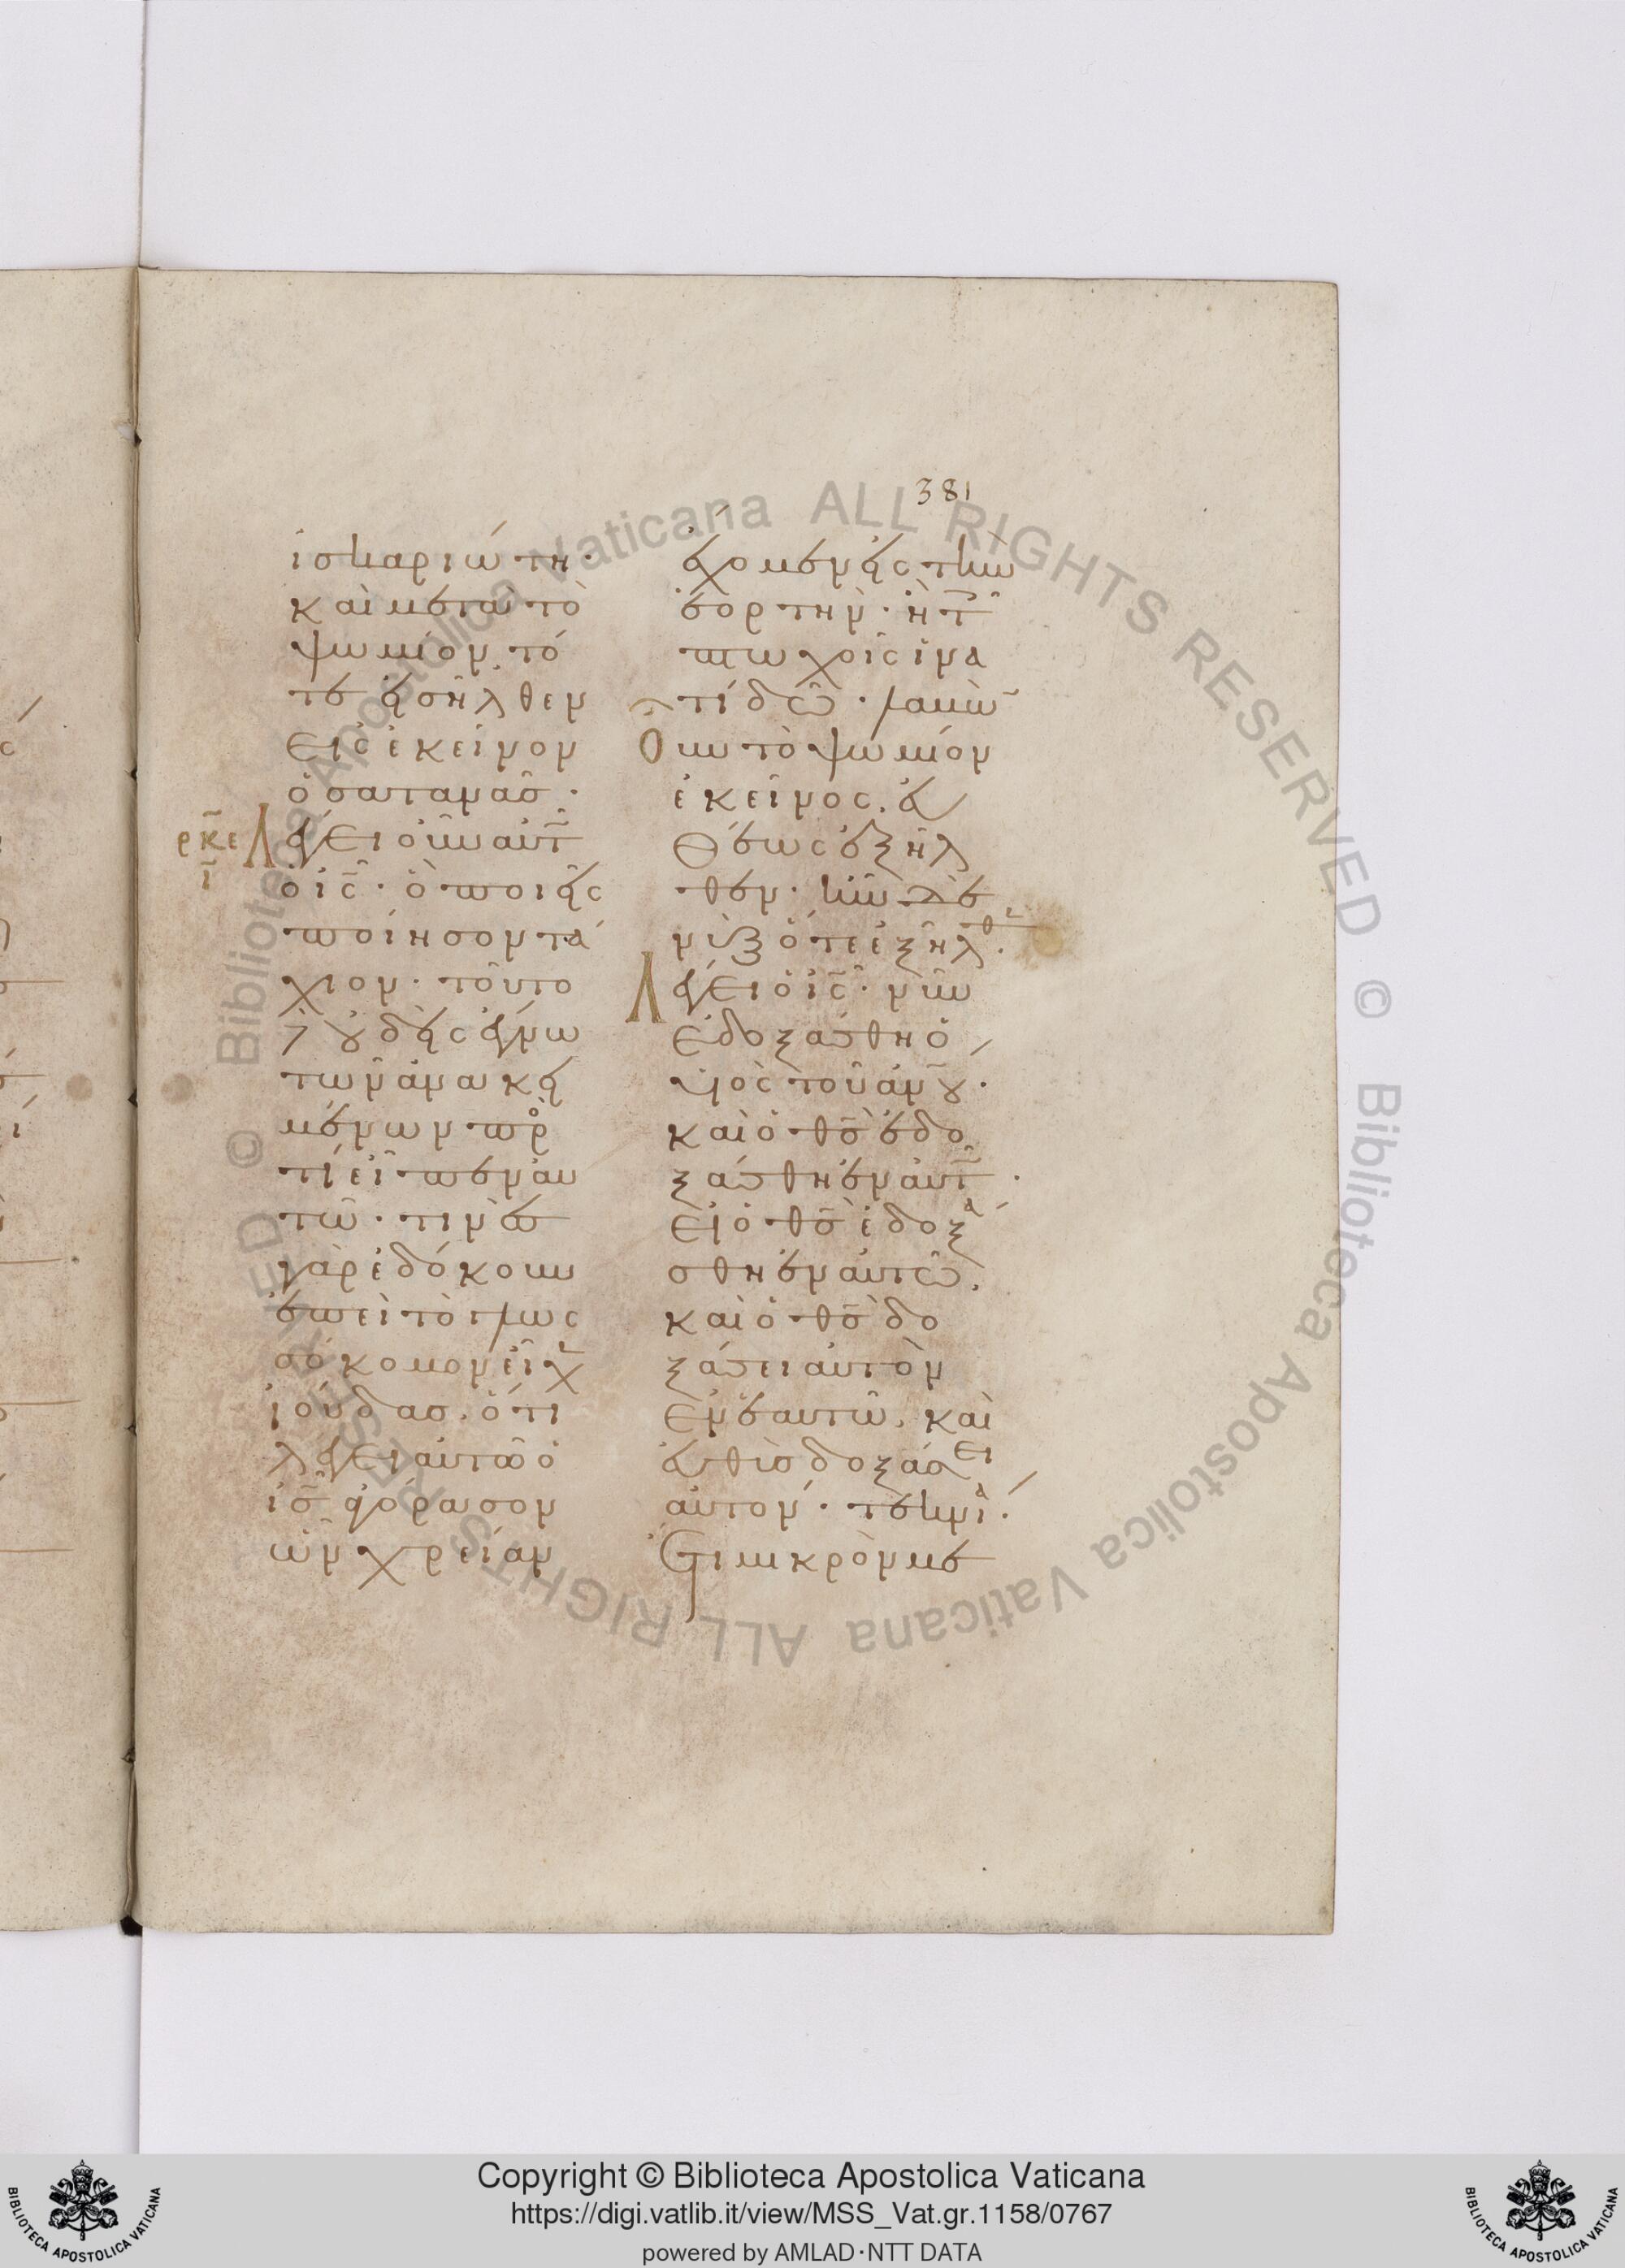 381
ἰσκαριώτη·
καὶ μετὰ τὸ
ψωμίον τό
τε εἰσῆλθεν
εἰς ἐκεῖνον
ὁ σατανᾶσ·
ρκε Λέγει οὖν αὐτῶ
ι ὁ ις· ὁ ποιεῖς
ποίησον τά
χιον· τοῦτο
δὲ οὐδεὶς ἔγνω
τῶν ἀνακει
μένων πρὸς
τί εἶπεν αὐ
τῶ· τινὲς
γὰρ ἐδόκουν
ἐπεὶ τὸ γλωσ
σόκομον εἶχεν
ἰούδασ. ὅτι
λέγει αὐτῶ ὁ
ισ ἀγόρασον
ὧν χρείαν
ἔχομεν εἰς τὴν
ἑορτήν· ἢ τοῖς
πτωχοῖς ἵνα
τι δῶ· λαβὼν
Οὖν τὸ ψωμίον
ἐκεῖνος. εὐ
θέως ἐξῆλ
θεν· ἦν δὲ
νὺξ ὅτε ἐξῆλθεν.
Λέγει ὁ ις· νῦν
ἐδοξάσθη ὁ
υἱὸς τοῦ ἀνου·
καὶ ὁ θσ ἐδο
ξάσθη ἐν αὐτῶ·
εἰ ὁ θσ ἐδοξά
σθη ἐν αὐτῶ.
καὶ ὁ θσ δο
ξάσει αὐτὸν
ἐν ἑαυτῶ. καὶ
εὐθὺσ δοξάσει
αὐτόν· τεκνία·
Ἔτι μικρὸν με
Copyright © Biblioteca Apostolica Vaticana
https://digi.vatlib.it/view/MSS_Vat.gr.1158/0767
powered by AMLAD·NTT DATA